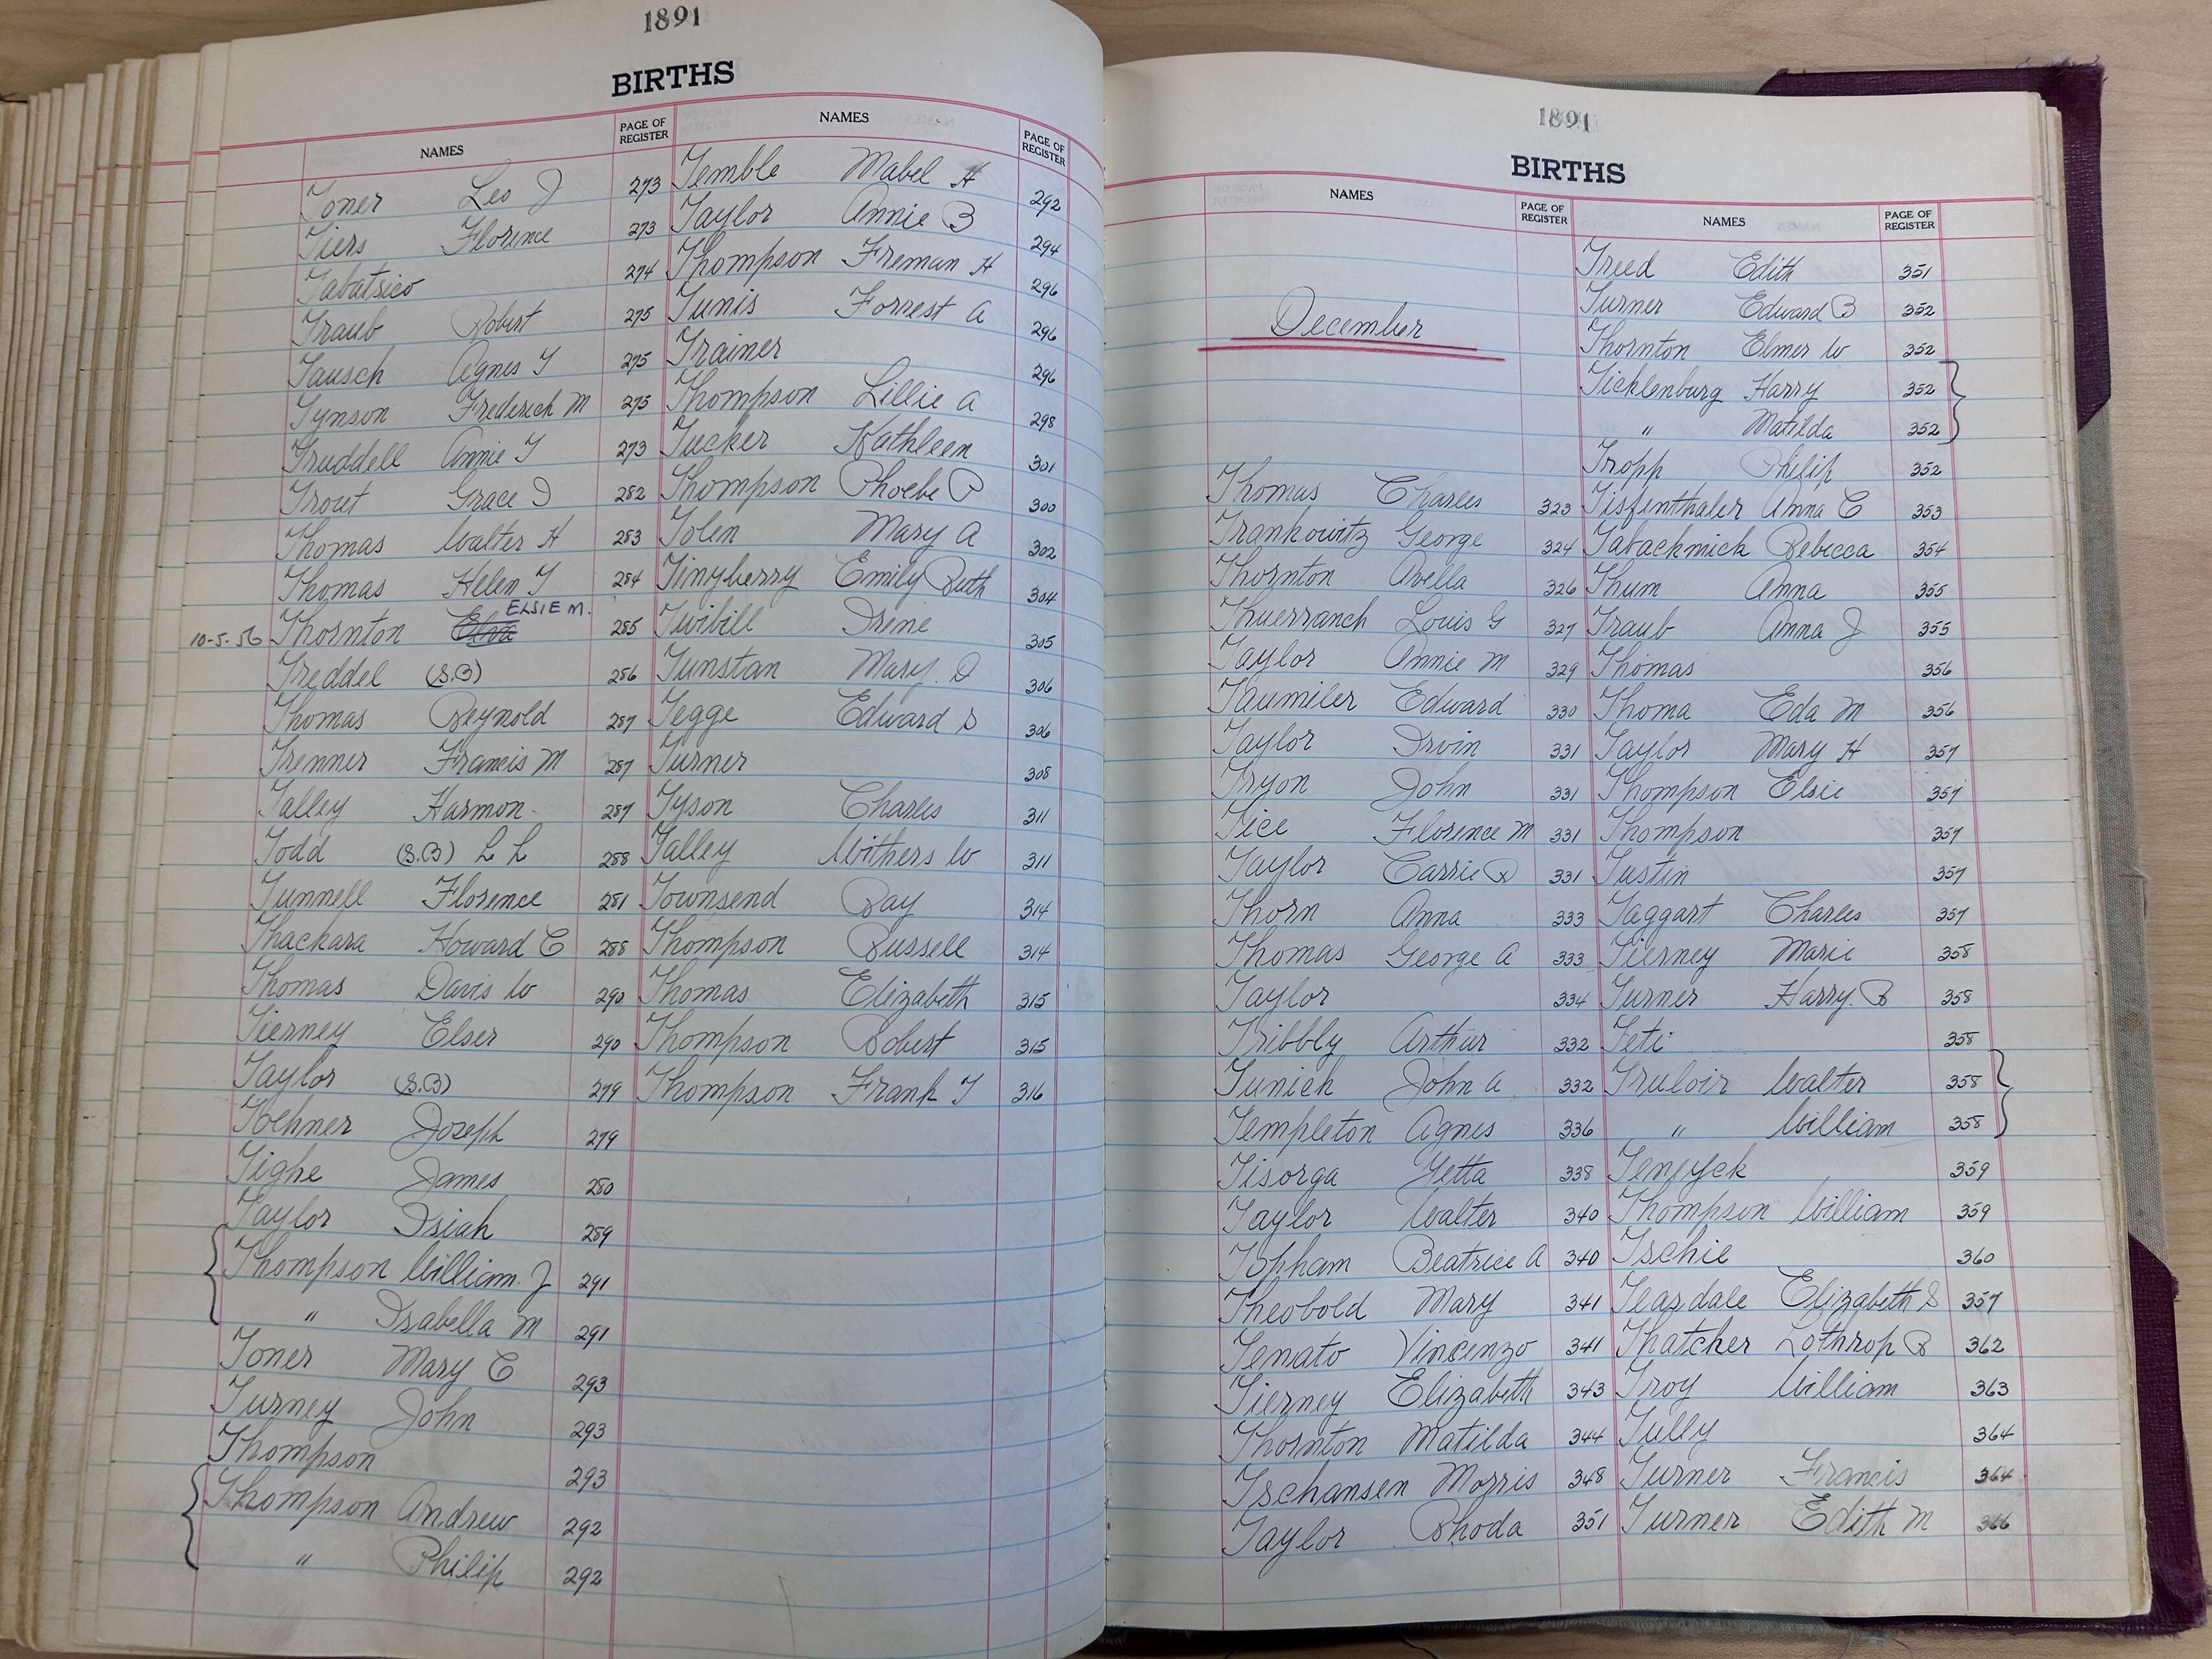 1891
BIRTHS
NAMES PAGE OF REGISTER NAMES PAGE OF REGISTER
Toner Leo J 273
Tiers Florence 273
Tabatsico 274
Traub Robert 275
Tausch Agnes T 275
Tynson Frederick M 275
Truddell Annie T 273
Trout Grace I 282
Thomas Walter H 283
Thomas Helen T 284
10-5-56 Thornton Elva ELSIE M. 285
Treddel (S.B) 286
Thomas Reynold 287
Trenner Francis M 287
Talley Harmon 287
Todd (S.B) L L 288
Tunnell Florence 281
Thackara Howard C 288
Thomas Davis W 290
Tierney Elser 290
Taylor (S.B) 279
Toehner Joseph 279
Tighe James 280
Taylor Isiah 289
Thompson William J 291
" Isabella M 291
Toner Mary C 293
Turney John 293
Thompson 293
Thompson Andrew 292
" Philip 292
Temble Mabel H 292
Taylor Annie B 294
Thompson Freman H 296
Tunis Forrest A 296
Trainer 296
Thompson Lillie A 298
Tucker Kathleen 301
Thompson Phoebe P 300
Tolen Mary A 302
Tinyberry Emily Ruth 304
Twibill Irene 305
Tunstan Mary D 306
Tegge Edward S 306
Turner 308
Tyson Charles 311
Talley Withers W 311
Townsend Ray 314
Thompson Russell 314
Thomas Elizabeth 315
Thompson Robert 315
Thompson Frank T 316
1891
BIRTHS
NAMES PAGE OF REGISTER NAMES PAGE OF REGISTER
December
Thomas Charles 323
Trankowitz George 324
Thornton Avella 326
Thuerranch Louis G 327
Taylor Annie M 329
Taumiler Edward 330
Taylor Irvin 331
Tryon John 331
Tice Florence M 331
Taylor Carrie R 331
Thorn Anna 333
Thomas George A 333
Taylor 334
Tribbly Arthur 332
Tunick John A 332
Templeton Agnes 336
Tisorga Yetta 338
Taylor Walter 340
Topham Beatrice A 340
Theobold Mary 341
Tenato Vincenzo 341
Tierney Elizabeth 343
Thornton Matilda 344
Tschansen Morris 348
Taylor Rhoda 351
Treed Edith 351
Turner Edward B 352
Thornton Elmer W 352
Ticklenburg Harry 352
" Matilda 352
Tropp Philip 352
Tisfenthaler Anna C 353
Tabackmick Rebecca 354
Thum Anna 355
Traub Anna J 355
Thomas 356
Thoma Eda M 356
Taylor Mary H 357
Thompson Elsie 357
Thompson 357
Tustin 357
Taggart Charles 357
Tierney Marie 358
Turner Harry R 358
Teti 358
Truloir Walter 358
" William 358
Teneyck 359
Thompson William 359
Tschie 360
Teasdale Elizabeth S 357
Thatcher Lothrop R 362
Troy William 363
Tully 364
Turner Francis 364
Turner Edith M 366